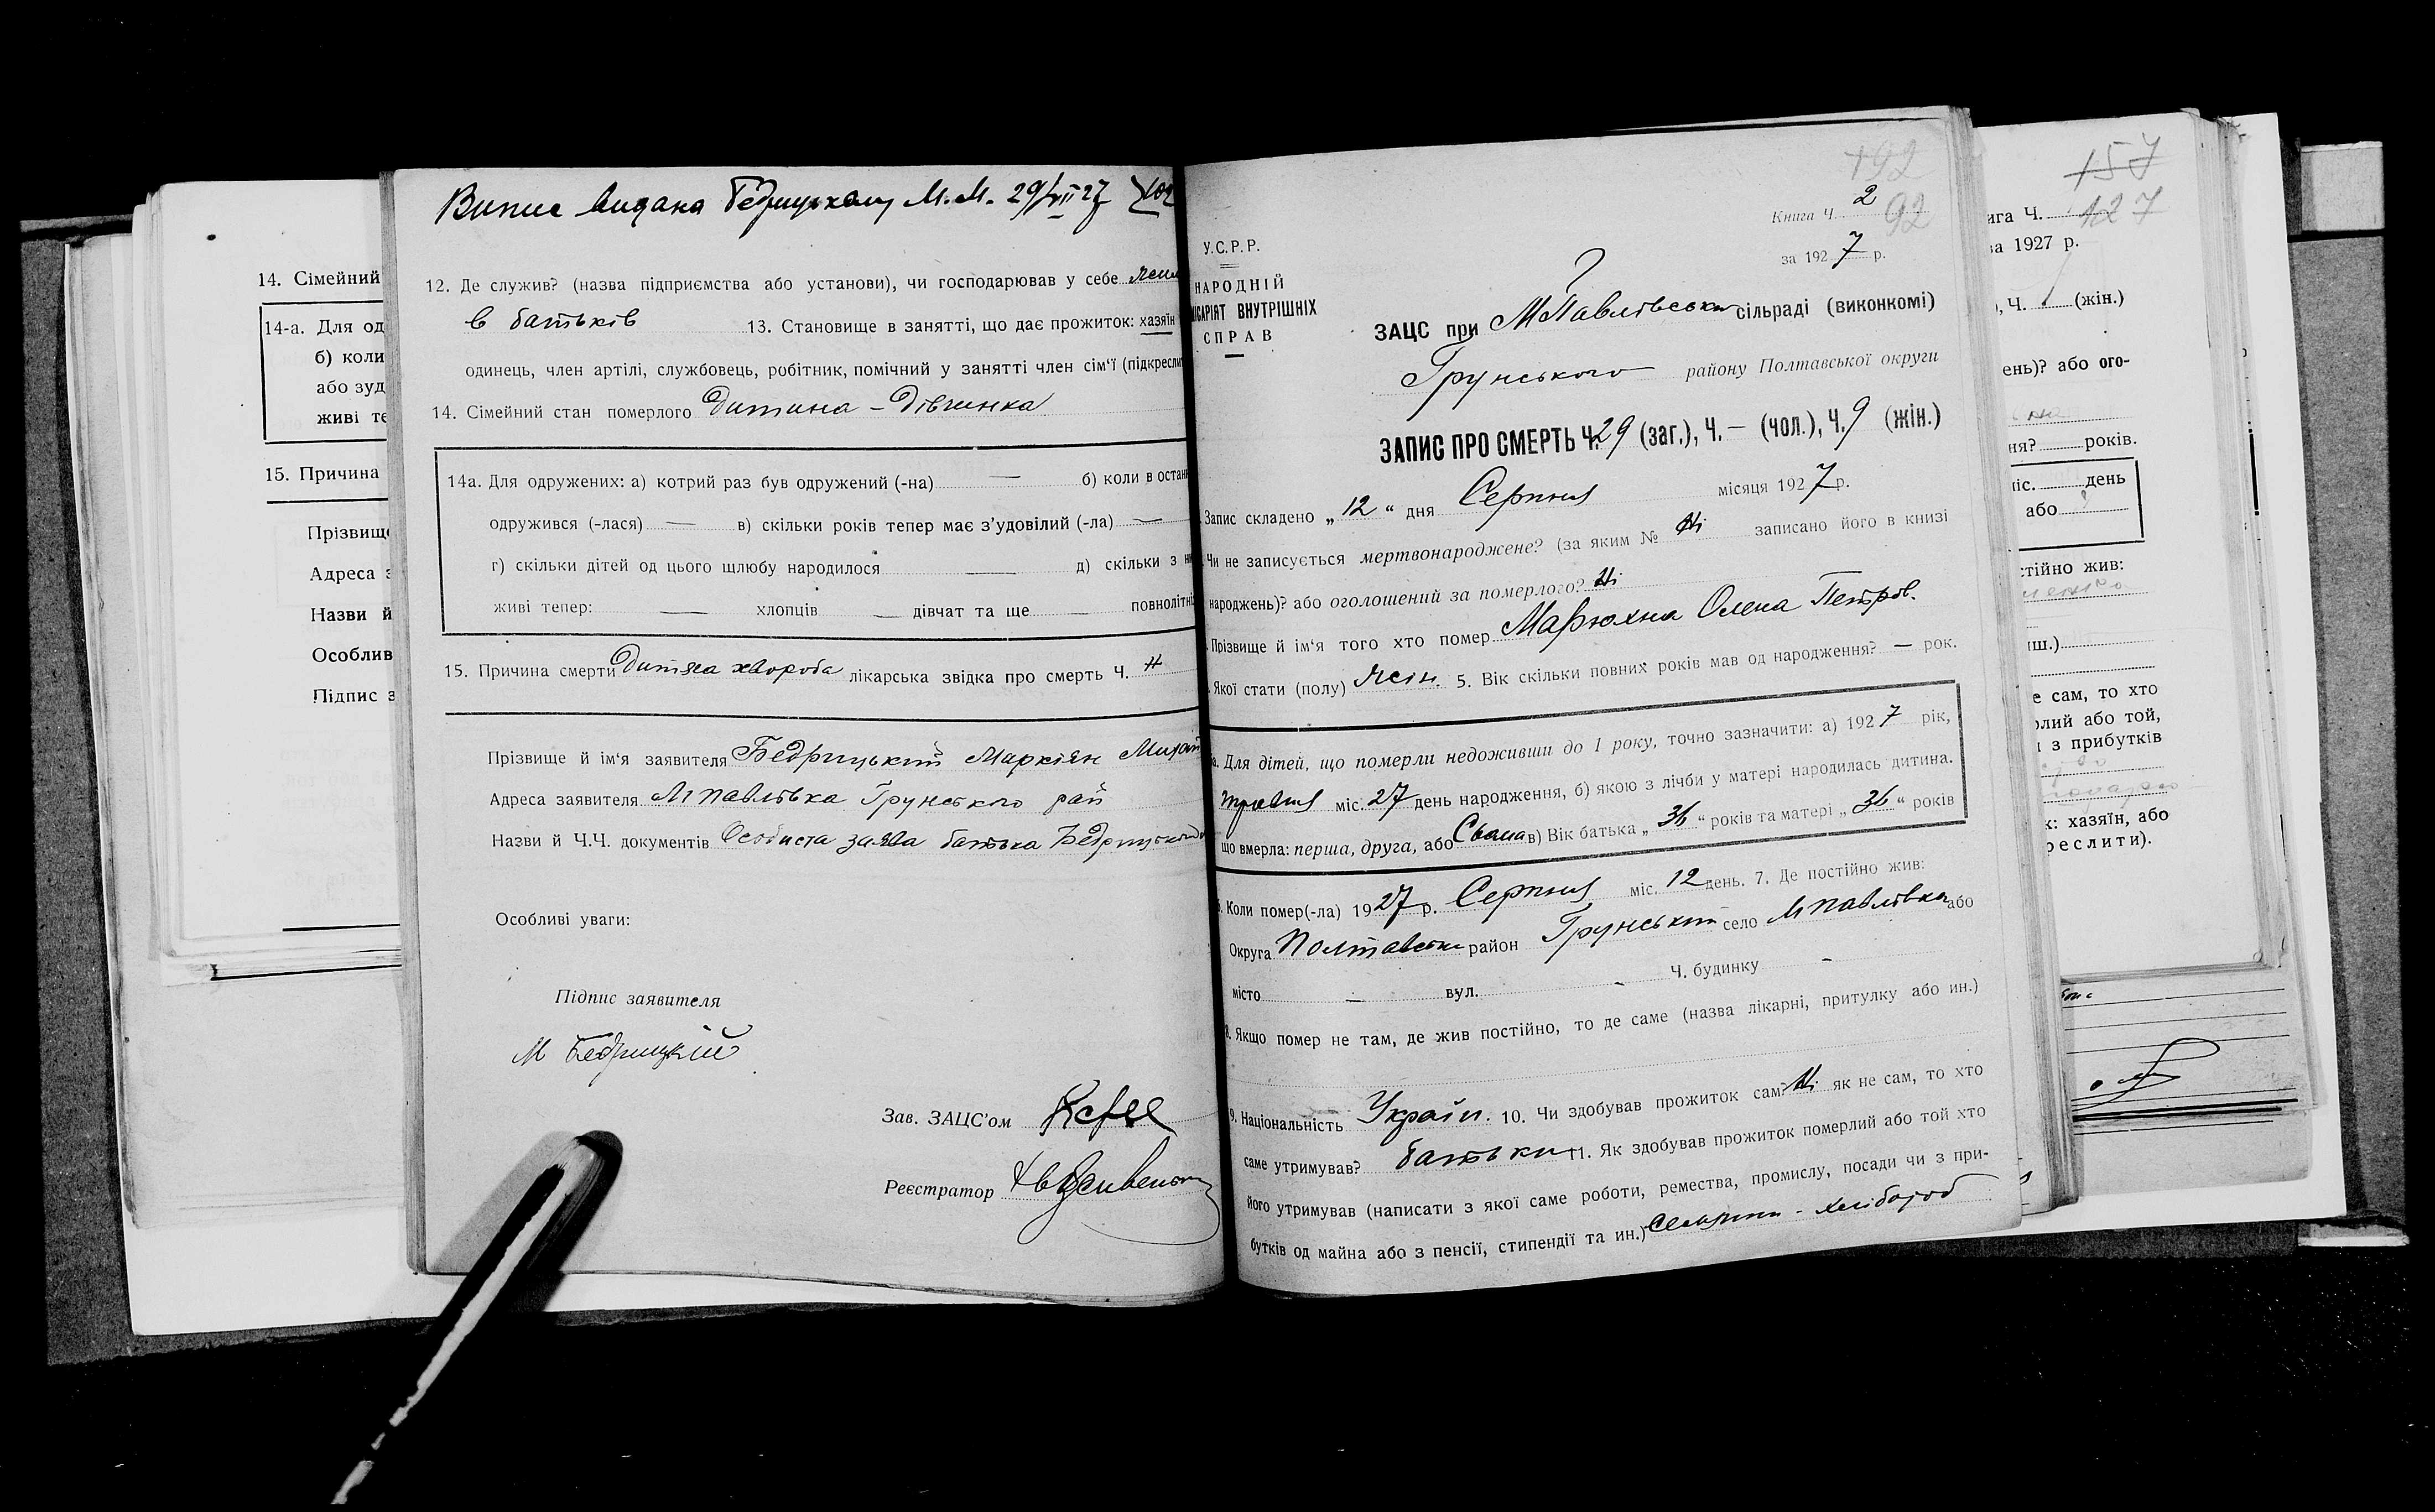 14. Сімейний
14-а. Для од
б) коли
або зуд
живі те
15. Причина
Прізвищ
Адреса з
Назви й
Особлив
Підпис з
Випис видана Бедрицькому М.М. 29/VII 27
12. Де служив? (назва підприємства або установи), чи господарював у себе жила
в батьків 13. Становище в занятті, що дає прожиток: хазяїн
одинець, член артілі, службовець, робітник, помічний у занятті член сім'ї (підкресли
14. Сімейний стан померлого Дитина – Дівчинка
14а. Для одружених: а) котрий раз був одружений (-на) — б) коли в остан
одружився (-лася) — в) скільки років тепер має з'удовілий (-ла) —
г) скільки дітей од цього щлюбу народилося — д) скільки з ни
живі тепер: — хлопців — дівчат та ще — повнолітні
15. Причина смерти Дитяча хвороба лікарська звідка про смерть Ч. Н
Прізвище й ім'я заявителя Бедрицький Маркіян Михай
Адреса заявителя М Павлівка Грунського рай
Назви й Ч.Ч. документів Особиста заява батька Бедрицького
Особливі уваги:
Підпис заявителя
М Бедрицкій
Зав. ЗАЦС'ом
Реєстратор
192
Книга Ч. 2 92
за 1927 р.
У.С.Р.Р.
НАРОДНІЙ
ІСАРІЯТ ВНУТРІШНІХ
СПРАВ
ЗАЦС при МПавлівськи сільраді (виконкомі)
Грунського району Полтавської округи
ЗАПИС ПРО СМЕРТЬ Ч. 29 (заг.), Ч. — (чол.), Ч. 9 (жін.)
Запис складено „12" дня Серпня місяця 1927 р.
Чи не записується мертвонароджене? (за яким № Ні записано його в книзі
народжень)? або оголошений за померлого? Ні
Прізвище й ім'я того хто помер Марюхна Олена Петров.
Якої стати (полу) Жін. 5. Вік скільки повних років мав од народження? — рок.
а. Для дітей, що померли недоживши до 1 року, точно зазначити: а) 1927 рік,
травня міс. 27 день народження, б) якою з лічби у матері народилась дитина.
що вмерла: перша, друга, або Сьома в) Вік батька „36" років та матері „36" років
6. Коли помер(-ла) 1927 р. Серпня міс. 12 день. 7. Де постійно жив:
Округа Полтавськи район Грунський село МПавлівка або
місто — вул. - Ч. будинку -
8. Якщо помер не там, де жив постійно, то де саме (назва лікарні, притулку або ин.)
9. Національність Україн. 10. Чи здобував прожиток сам? Ні як не сам, то хто
саме утримував? батьки 11. Як здобував прожиток померлий або той хто
його утримував (написати з якої саме роботи, ремества, промислу, посади чи з при-
бутків од майна або з пенсії, стипендії та ин.) селянин - хлібороб
157
ига Ч. 127
за 1927 р.
), Ч. (жін.)
ень)? або ого-
ня? років.
міс. день
або
стійно жив:
иш.)
е сам, то хто
рлий або той,
и з прибутків
к: хазяїн, або
реслити).